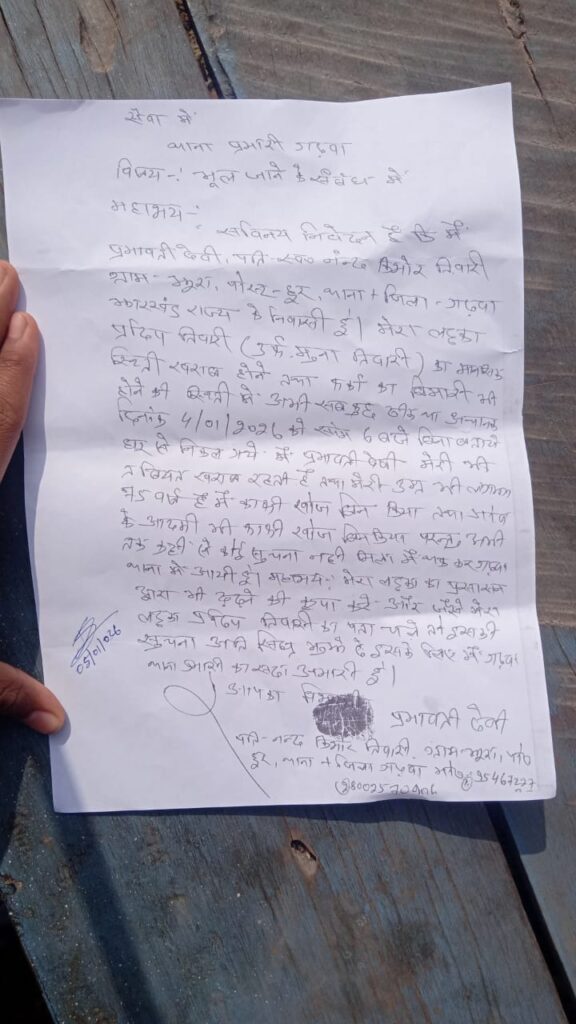 सेवा में
थाना प्रभारी गढ़वा
विषय-: भूल जाने के संबंध में
महाशय-:
सविनय निवेदन है कि मैं
प्रभावती देवी, पति-स्व० नन्द किशोर तिवारी
ग्राम- पोस्ट-हूर, थाना + जिला-गढ़वा
झारखंड राज्य के निवासी हूँ। मेरा लड़का
प्रदिप तिवारी (उर्फ मुना तिवारी) का
स्थिती खराब होने तथा का बिमारी भी
होने की स्थिती में अभी सब कुछ ठीक था अचानक
दिनांक 4/01/2026 को 6 बजे बिना बताये
घर से निकल गये मैं प्रभावती देवी मेरी भी
तबियत खराब रहती है तथा मेरी उम्र भी लगभग
75 वर्ष है मैं काफी खोज बिन किया तथा गांव
के आदमी भी काफी खोज बिन किया परन्तु अभी
तक कही से कोई सुचना नही मिला मैं थक कर गढ़वा
थाना में आयी हूं। मेरा लड़का का प्रसासन
द्वारा भी ढुढ़ने की कृपा करें और जैसे मेरा
लड़का प्रदिप तिवारी का पता चले तो इसकी
सुचना अति मुझको दे इसके लिए मैं गढ़वा
थाना प्रभारी का सदा आभारी हूं।
05/01/026
आपका
प्रभावती देवी
पति-नन्द किशोर तिवारी, ग्राम- पो०
हूर, थाना + जिला गढ़वा